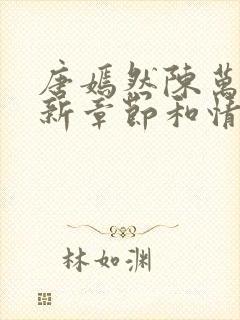 唐嫣然陳萬
新章節和情
林如渊